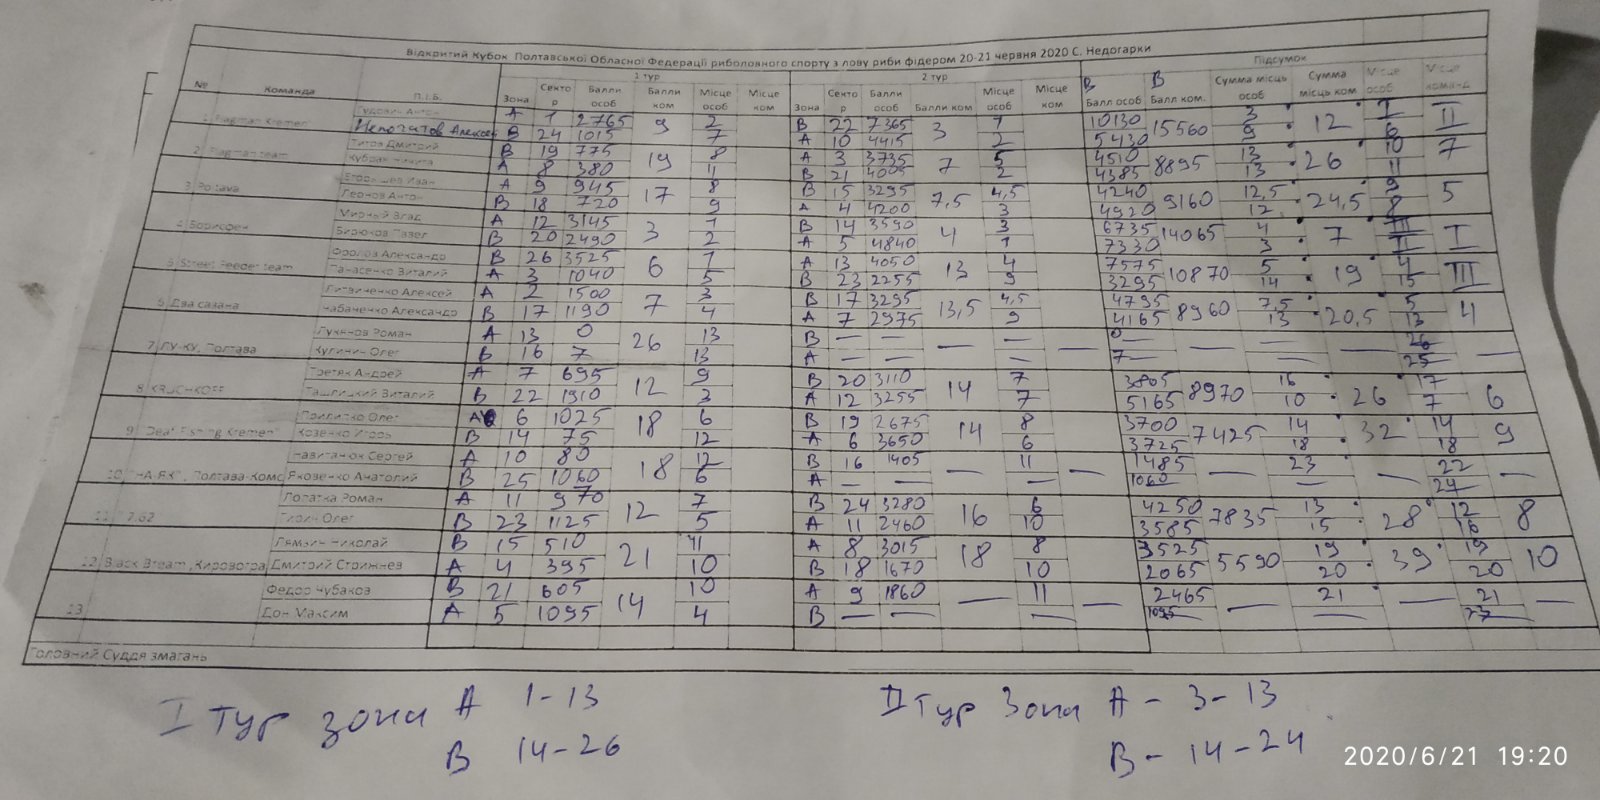 Відкритий Кубок Полтавської Обласної Федерації риболовного спорту з лову риби фідером 20-21 червня 2020 С. Недогарки
1 тур 2 тур Підсумок
№ Команда П.І.Б. Зона Сектор Балли особ Балли ком Місце особ Місце ком Зона Сектор Балли особ Балли ком Місце особ Місце ком В Балл особ В Балл ком. Сумма місць особ Сумма місць ком Місце особ Місце команд
1 Flagman Kremen Гудович Антон A 1 2765 9 2 B 22 7365 3 1 10130 15560 3 12 I II
Непочатов Алексей B 24 1015 7 A 10 4415 2 5430 9 6
2 Flagman team Титов Дмитрий B 19 775 19 8 A 3 3735 7 5 4510 8895 13 26 10 7
Кубрак Никита A 8 380 11 B 21 4005 2 4385 13 11
3 Poltava Иван A 9 945 17 8 B 15 3295 7,5 4,5 4240 9160 12,5 24,5 9 5
Леонов Антон B 18 720 9 A 4 4200 3 4920 12 8
4 Борисфен Мирный Влад A 12 3145 3 1 B 14 3590 4 3 6735 14065 4 7 III I
Бирюков Павел B 20 2490 2 A 5 4840 1 7330 3 II
5 Street Feeder team Фролов Александр B 26 3525 6 1 A 13 4050 13 4 7575 10870 5 19 4 III
Панасенко Виталий A 3 1040 5 B 23 2255 9 3295 14 15
6 Два сазана Литвиненко Алексей A 2 1500 7 3 B 17 3295 13,5 4,5 4795 8960 7,5 20,5 5 4
Чабаненко Александр B 17 1190 4 A 7 2975 9 4165 13 13
7 ЛУ-КУ, Полтава Лукянов Роман A 13 0 26 13 B — — — — — 0 — — — 26 —
Кулинич Олег B 16 7 13 A — — — 7 — 25
8 KRUCHKOFF Третяк Андрей A 7 695 12 9 B 20 3110 14 7 3805 8970 16 26 17 6
Ташлицкий Виталий B 22 1910 3 A 12 3255 7 5165 10 7
9 "Deaf Fishing Kremen" Прилипко Олег A 6 1025 18 6 B 19 2675 14 8 3700 7425 14 32 14 9
Козенко Игорь B 14 75 12 A 6 3650 6 3725 18 18
10 "НА ЯК", Полтава-Комс Навитанюк Сергей A 10 80 18 12 B 16 1405 — 11 — 1485 — 23 — 22 —
Яковенко Анатолий B 25 1060 6 A — — — 1060 — 24
11 7.62 Лопатка Роман A 11 970 12 7 B 24 3280 16 6 4250 7835 13 28 12 8
Олег B 23 1125 5 A 11 2460 10 3585 15 16
12 Black Bream, Кировогра Лямзин Николай B 15 510 21 11 A 8 3015 18 8 3525 5590 19 39 19 10
Дмитрий Стрижнев A 4 395 10 B 18 1670 10 2065 20 20
13 Федор Чубаков B 21 605 14 10 A 9 1860 — 11 — 2465 — 21 — 21 —
Дон Максим A 5 1095 4 B — — — 1095 — 23
Головний Суддя змагань
I Тур зона A 1-13
B 14-26
II Тур Зона A - 3-13
B - 14-24
2020/6/21 19:20